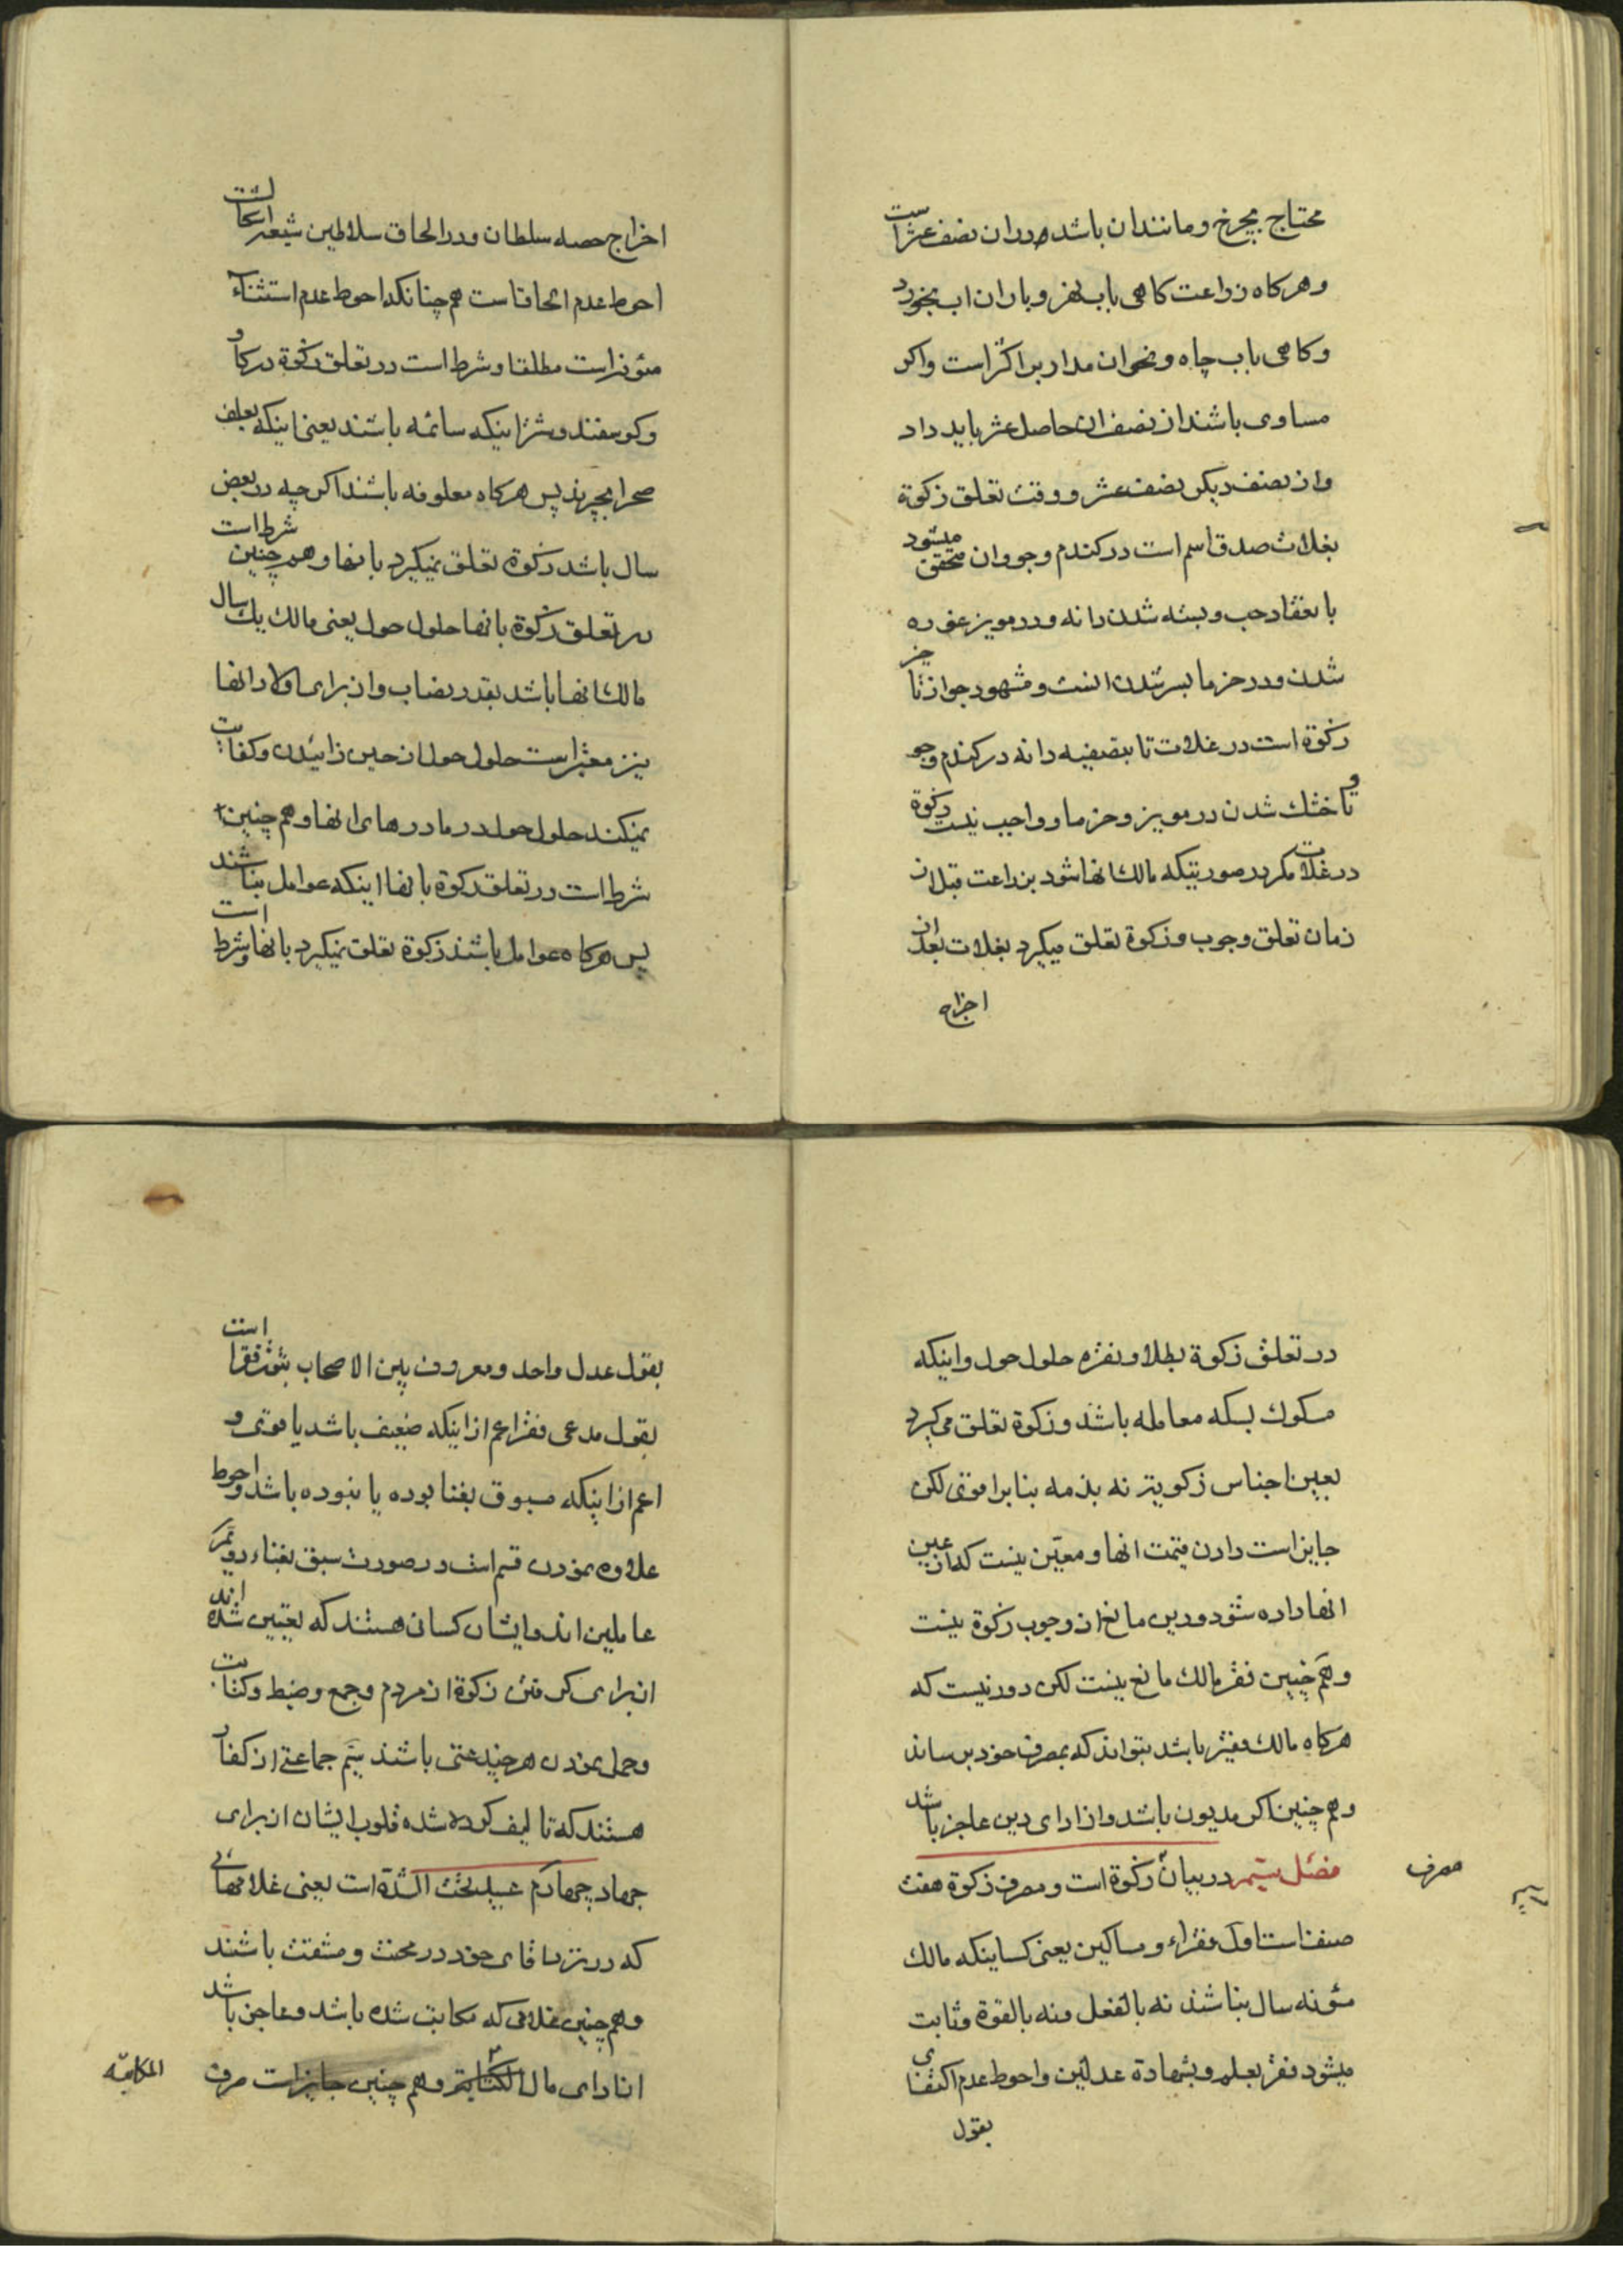 محتاج بچرخ و مانند ان باشد در ان نصف عشر است
و هر کاه زراعت کاهی باب نهر و باران اب بخورد
و کاهی باب چاه و نحو ان مدار بر اکثر است و اکر
مساوی باشند از نصف ان حاصل عشر باید داد
و از نصف دیکر نصف عشر و وقت تعلق زکوة
بغلات صدق اسم است در کندم و جو و ان متحقق میشود
بانعقاد حب و بسته شدن دانه و در مویز غوره
شدن و در خرما بسر شدن است و مشهور جواز تاخیر
زکوة است در غلات تا بتصفیه دانه در کندم و جو
و تا خشک شدن در مویز و خرما و واجب نیست زکوة
در غلات مکر در صورتیکه مالک انها شود بزراعت قبل از
زمان تعلق وجوب و زکوة تعلق میکیرد بغلات بعد از
اخراج
اخراج حصه سلطان و در الحاق سلاطین شیعه اشکالست
احوط عدم الحاقست هم چنانکه احوط عدم استثناء
مئونه است مطلقا و شرط است در تعلق زکوة در کاو
و کوسفند و شتر اینکه سائمه باشند یعنی اینکه بعلف
صحرا بچرند پس هر کاه معلوفه باشند اکر چه در بعض
سال باشد زکوة تعلق نمیکیرد بانها و هم چنین شرط است
در تعلق زکوة بانها حلول حول یعنی مالک یک سال
مالک انها باشد بقدر نصاب و از برای اولاد انها
نیز معتبر است حلول حول از حین زائیدن و کفایت
نمیکند حلول حول در مادرهای انها و هم چنین
شرط است در تعلق زکوة بانها اینکه عوامل نباشند
پس هر کاه عوامل باشند زکوة تعلق نمیکیرد بانها و شرط است
در تعلق زکوة بطلا و نقره حلول حول و اینکه
مسکوک بسکه معامله باشند و زکوة تعلق میکیرد
بعین اجناس زکویة نه بذمه بنا بر اقوی لکن
جایز است دادن قیمت انها و معین نیست که از عین
انها داده شود و دین مانع از وجوب زکوة نیست
و هم چنین فقر مالک مانع نیست لکن دور نیست که
هر کاه مالک فقیر باشد بتواند که بمصرف خود برساند
و هم چنین اکر مدیون باشد و از ادای دین عاجز باشد
فصل سیم در بیان زکوة است و مصرف زکوة هفت
مصرف
صنف است اول فقراء و مساکین یعنی کسانیکه مالک
مئونه سال نباشند نه بالفعل و نه بالقوة و ثابت
میشود فقر بعلم و بشهادة عدلین و احوط عدم اکتفای
بقول
بقول عدل واحد و معروف بین الاصحاب ثبوت فقر است
بقول مدعی فقر اعم از اینکه ضعیف باشد یا قوی و
اعم از اینکه مسبوق بغنا بوده یا نبوده باشد و احوط
علاوه نمودن قسم است در صورت سبق بغناء دویم
عاملین اند و ایشان کسانی هستند که تعیین شده اند
از برای کرفتن زکوة از مردم و جمع و ضبط و کتابت
و حمل نمودن هر چند غنی باشند سیم جماعتی از کفار
هستند که تالیف کرده شده قلوب ایشان از برای
جهاد چهارم عبید تحت الشدة است یعنی غلامهائی
که در نزد اقای خود در محنت و مشقت باشند
و هم چنین غلامی که مکاتب شده باشد و عاجز باشد
از ادای مال الکتابة و هم چنین جایز است صرف
المکاتبه